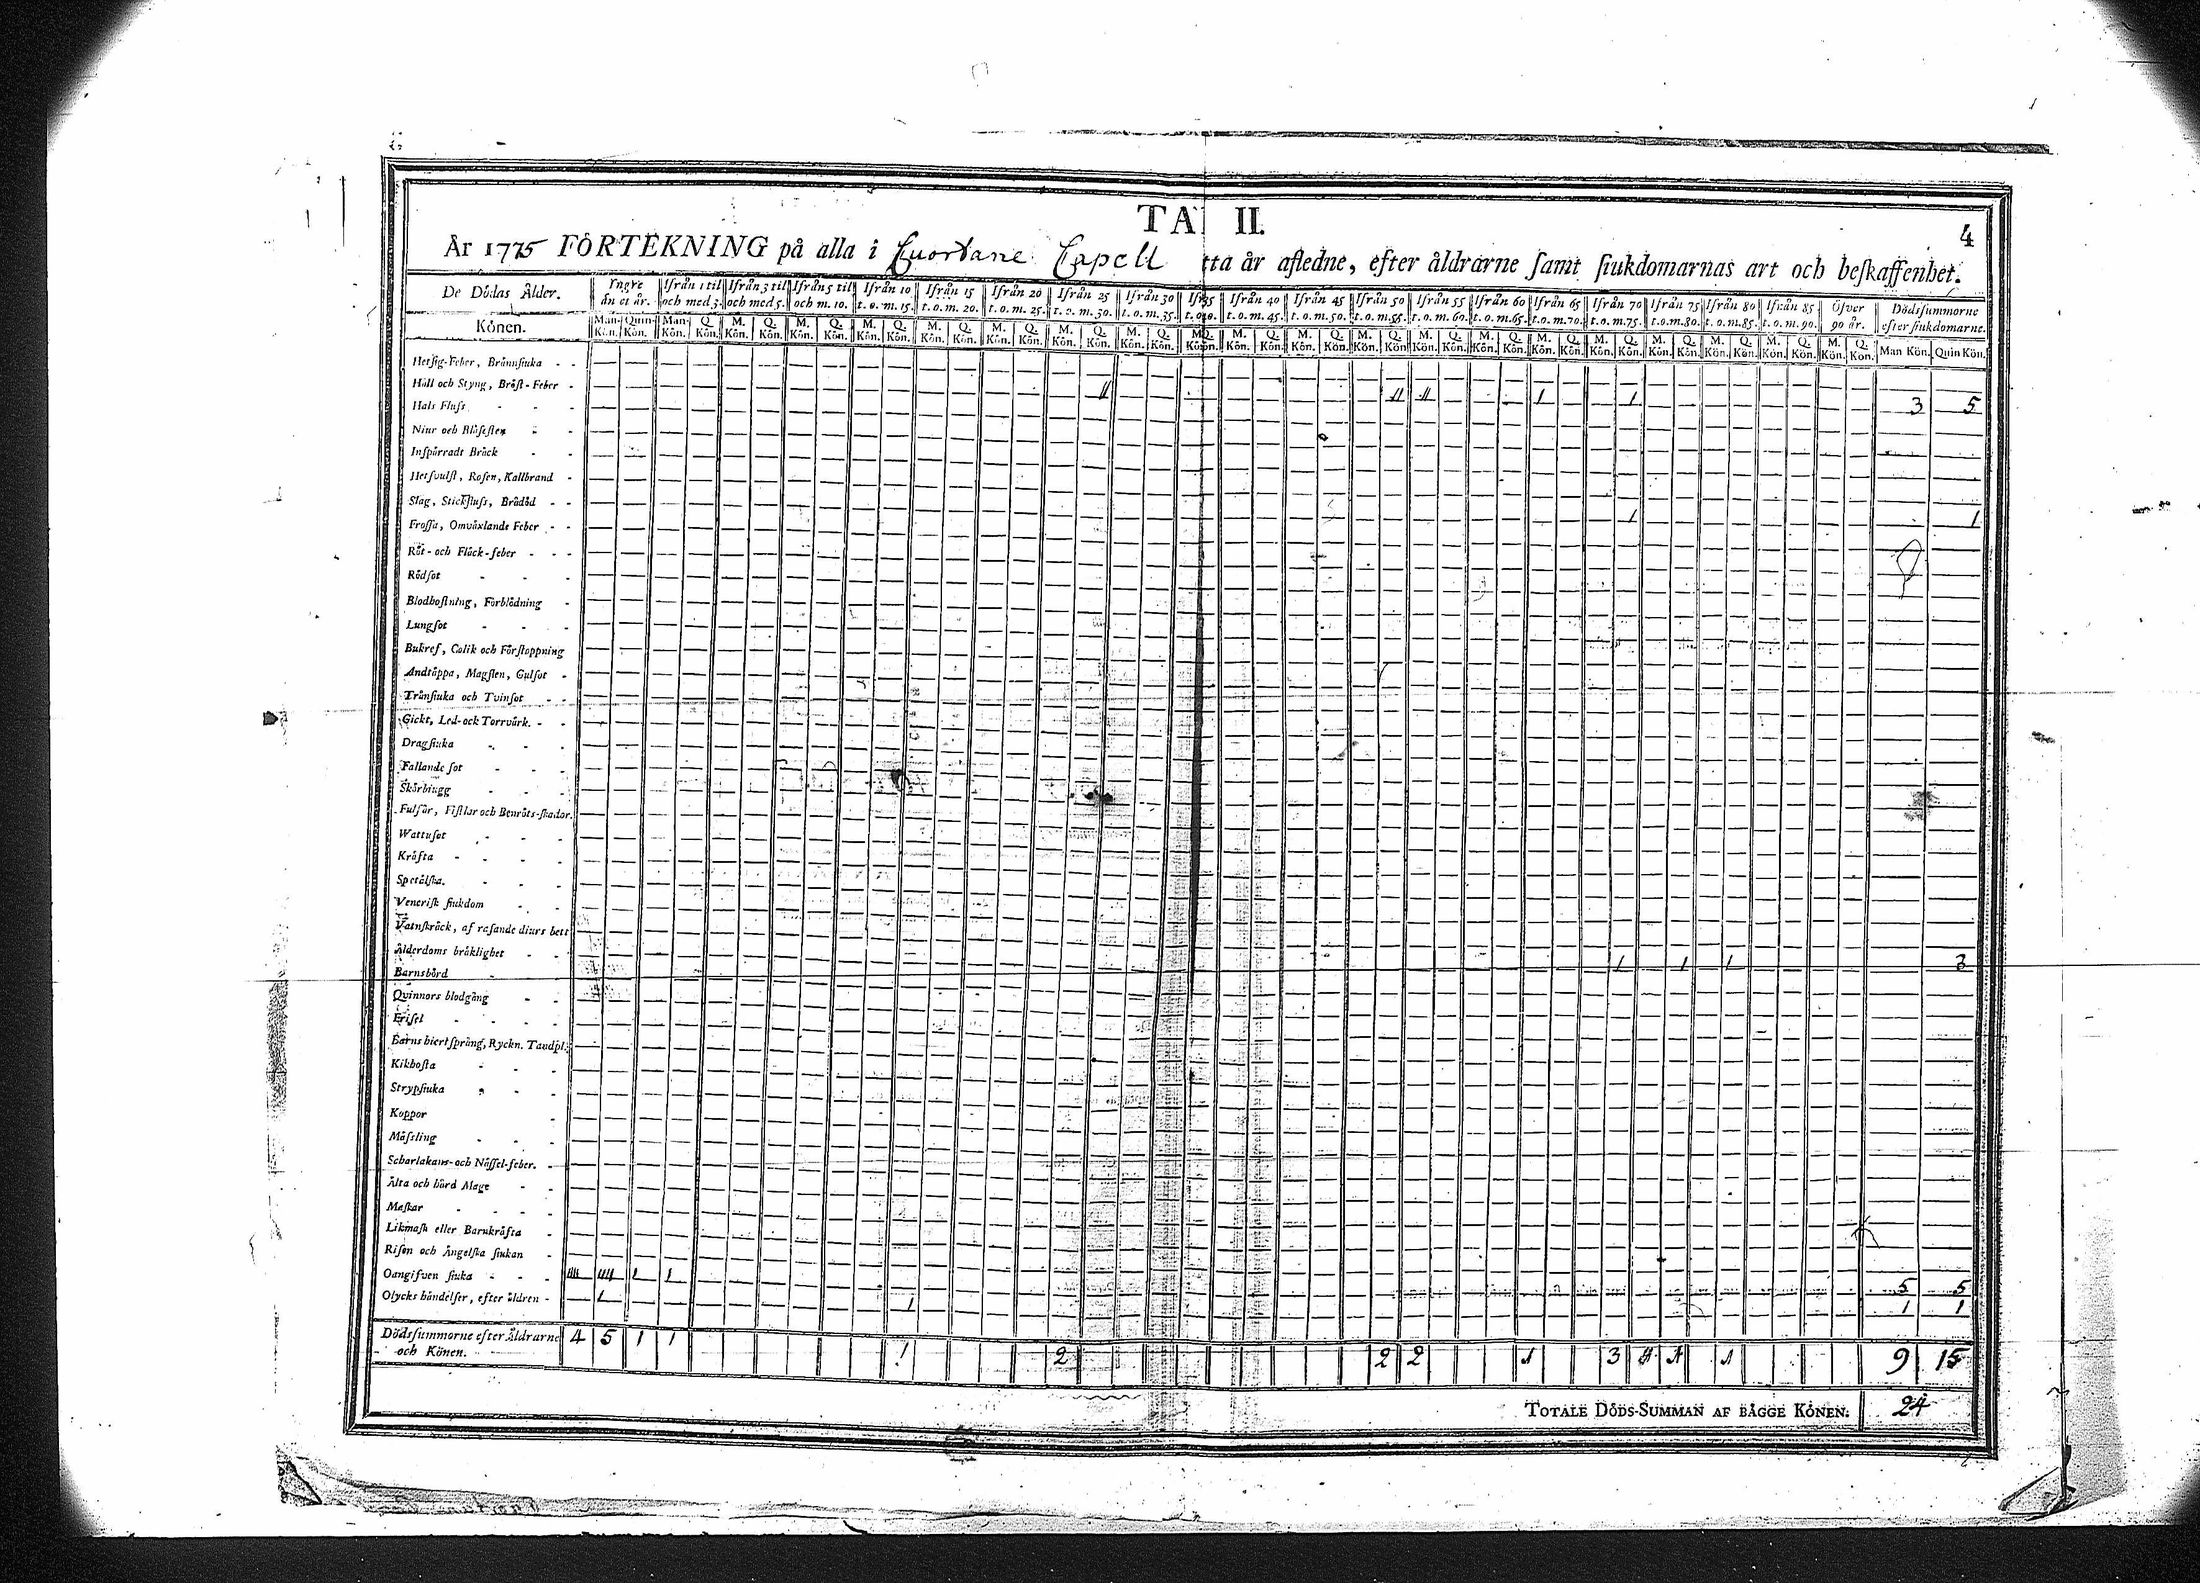 TA II.
4
År 1775 FÖRTEKNING på alla i Cuortane Capell tta år afledne, efter åldrarne samt siukdomarnas art och beskaffenhet.
De Dödas Ålder. Yngre än et år. Ifrån 1 til och med 3. Ifrån 3 til och med 5. Ifrån 5 til och m. 10. Ifrån 10 t. o. m. 15. Ifrån 15 t. o. m. 20. Ifrån 20 t. o. m. 25. Ifrån 25 t. o. m. 30. Ifrån 30 t. o. m. 35. Ifrån 40 t. o. m. 45. Ifrån 45 t. o. m. 50. Ifrån 50 t. o. m. 55. Ifrån 55 t. o. m. 60. Ifrån 60 t. o. m. 65. Ifrån 65 t. o. m. 70. Ifrån 70 t. o. m. 75. Ifrån 75 t. o. m. 80. Ifrån 80 t. o. m. 85. Ifrån 85 t. o. m. 90. Öfver 90 år. Dödssummorne efter siukdomarne.
Könen. Man Kön. Quin Kön. Man Kön. Q. Kön. M. Kön. Q. Kön. M. Kön. Q. Kön. M. Kön. Q. Kön. M. Kön. Q. Kön. M. Kön. Q. Kön. M. Kön. Q. Kön. M. Kön. Q. Kön. M. Kön. Q. Kön. M. Kön. Q. Kön. M. Kön. Q. Kön. M. Kön. Q. Kön. M. Kön. Q. Kön. M. Kön. Q. Kön. M. Kön. Q. Kön. M. Kön. Q. Kön. M. Kön. Q. Kön. M. Kön. Q. Kön. M. Kön. Q. Kön. Man Kön. Quin Kön.
Hetsig-Feber, Brännsiuka - -
Håll och Styng, Bröst-Feber - 11 11 11 1 1 3 5
Hals Fluss - - -
Niur och Blåsesten - -
Inspärradt Bråck - -
Hetsvulst, Rosen, Kallbrand -
Slag, Stickfluss, Brådöd - -
Frossa, Omväxlande Feber - - 1 1
Röt- och Fläck-feber - - -
Rödsot - - -
Blodhostning, Förblödning -
Lungsot - - -
Bukref, Colik och Förstoppning
Andtäppa, Magsten, Gulsot -
Trånsiuka och Tvinsot - -
Gickt, Led- och Torrvärk. - -
Dragsiuka - - -
Fallande sot - - -
Skörbiugg - - -
Fulsår, Fistlar och Benröts-skador.
Wattusot - - -
Kräfta - - - -
Spetälska. - - -
Venerisk siukdom - -
Vatnskräck, af rasande diurs bett
Ålderdoms bräklighet - - 1 1 1 3
Barnsbörd -
Qvinnors blodgång - -
Frisel - - - -
Barns hiertsprång, Ryckn. Tandpl.
Kikhosta - - -
Strypsiuka - - -
Koppor -
Mässling - - -
Scharlakans- och Nässel-feber. -
Älta och hård Mage - -
Maskar - - - -
Likmask eller Barnkräfta -
Risen och Ängelska siukan -
Oangifven siuka - - - 1111 1111 1 1 5 5
Olycks händelser, efter äldren - 1 1 1 1
Dödssummorne efter Åldrarne och Könen. 4 5 1 1 1 2 2 2 1 3 1 1 9 15
TOTALE DÖDS-SUMMAN AF BÅGGE KÖNEN: 24